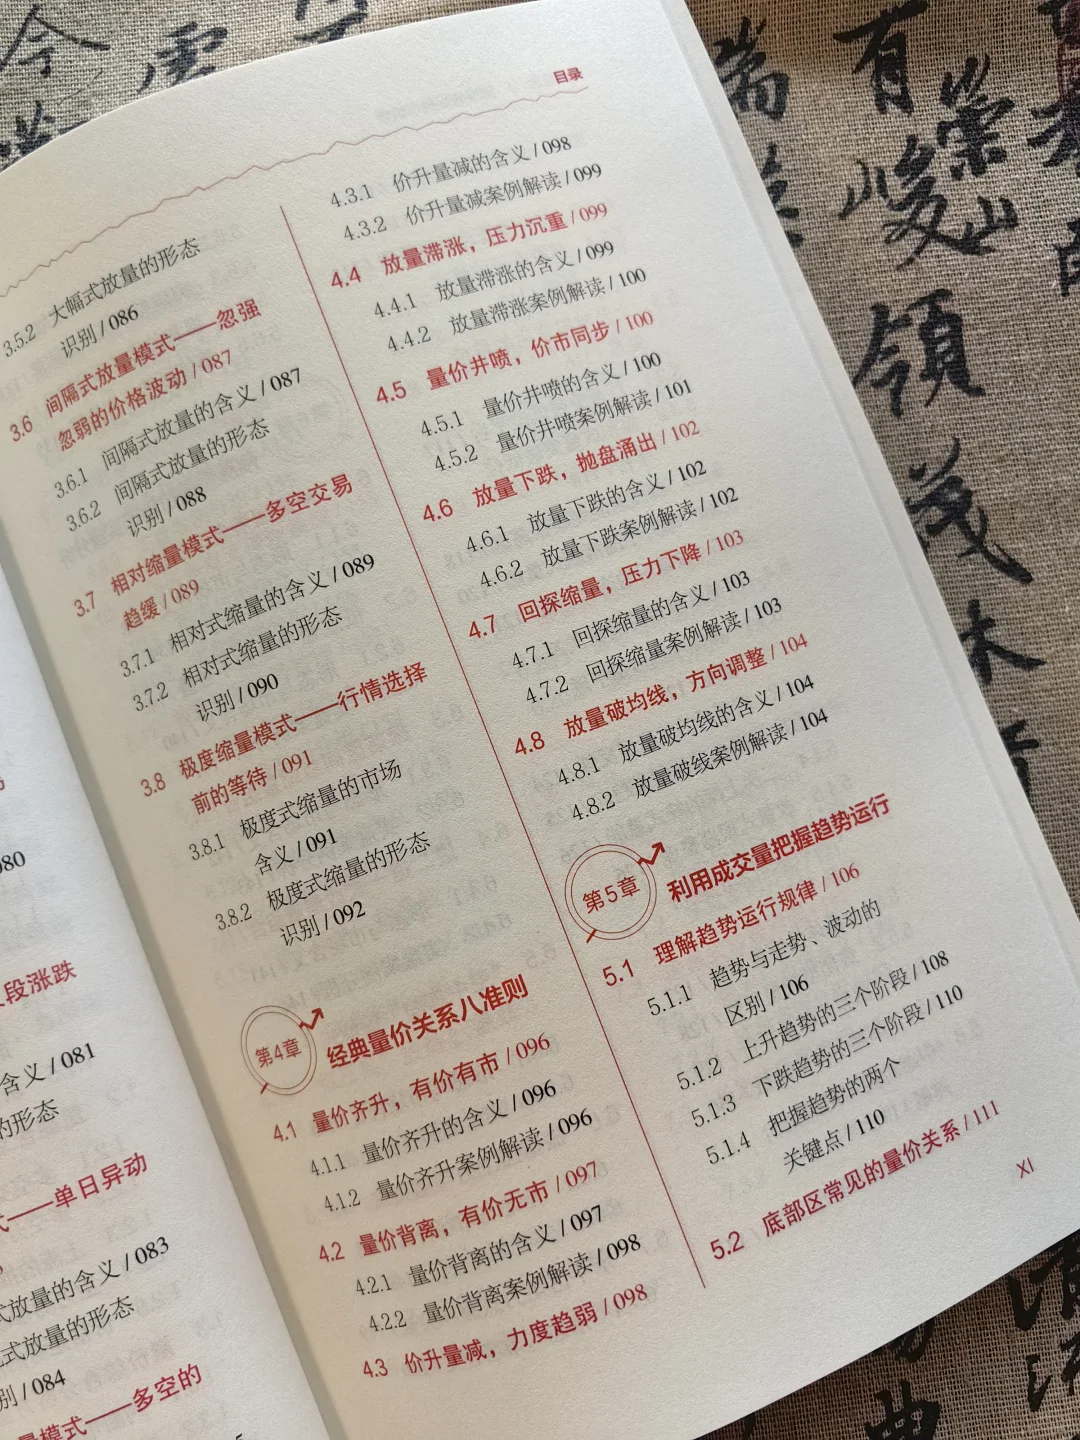 目录
3.5.2 大幅式放量的形态
识别 / 086
3.6 间隔式放量模式——忽强
忽弱的价格波动 / 087
3.6.1 间隔式放量的含义 / 087
3.6.2 间隔式放量的形态
识别 / 088
3.7 相对缩量模式——多空交易
趋缓 / 089
3.7.1 相对式缩量的含义 / 089
3.7.2 相对式缩量的形态
识别 / 090
3.8 极度缩量模式——行情选择
前的等待 / 091
3.8.1 极度式缩量的市场
含义 / 091
3.8.2 极度式缩量的形态
识别 / 092
第4章
经典量价关系八准则
4.1 量价齐升，有价有市 / 096
4.1.1 量价齐升的含义 / 096
4.1.2 量价齐升案例解读 / 096
4.2 量价背离，有价无市 / 097
4.2.1 量价背离的含义 / 097
4.2.2 量价背离案例解读 / 098
4.3 价升量减，力度趋弱 / 098
4.3.1 价升量减的含义 / 098
4.3.2 价升量减案例解读 / 099
4.4 放量滞涨，压力沉重 / 099
4.4.1 放量滞涨的含义 / 099
4.4.2 放量滞涨案例解读 / 100
4.5 量价井喷，价市同步 / 100
4.5.1 量价井喷的含义 / 100
4.5.2 量价井喷案例解读 / 101
4.6 放量下跌，抛盘涌出 / 102
4.6.1 放量下跌的含义 / 102
4.6.2 放量下跌案例解读 / 102
4.7 回探缩量，压力下降 / 103
4.7.1 回探缩量的含义 / 103
4.7.2 回探缩量案例解读 / 103
4.8 放量破均线，方向调整 / 104
4.8.1 放量破均线的含义 / 104
4.8.2 放量破线案例解读 / 104
第5章
利用成交量把握趋势运行
5.1 理解趋势运行规律 / 106
5.1.1 趋势与走势、波动的
区别 / 106
5.1.2 上升趋势的三个阶段 / 108
5.1.3 下跌趋势的三个阶段 / 110
5.1.4 把握趋势的两个
关键点 / 110
5.2 底部区常见的量价关系 / 111
XI
080
段涨跌
含义 / 081
的形态
式——单日异动
式放量的含义 / 083
式放量的形态
别 / 084
量模式——多空的
有
峻
領
茂